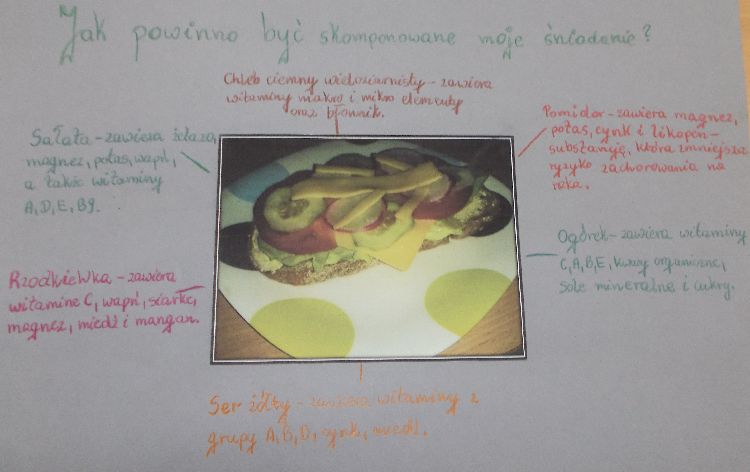 Jak powinno być skomponowane moje śniadanie?
Chleb ciemny wieloziarnisty - zawiera
witaminy makro i mikro elementy
oraz błonnik.
Sałata - zawiera żelazo,
magnez, potas, wapń,
a także witaminy
A, D, E, B9.
Pomidor - zawiera magnez,
potas, cynk i likopen -
substancję, która zmniejsza
ryzyko zachorowania na
raka.
Rzodkiewka - zawiera
witaminę C, wapń, siarkę,
magnez, miedź i mangan.
Ogórek - zawiera witaminy
C, A, B, E, kwasy organiczne,
sole mineralne i cukry.
Ser żółty - zawiera witaminy z
grupy A, B, D, cynk, miedź.